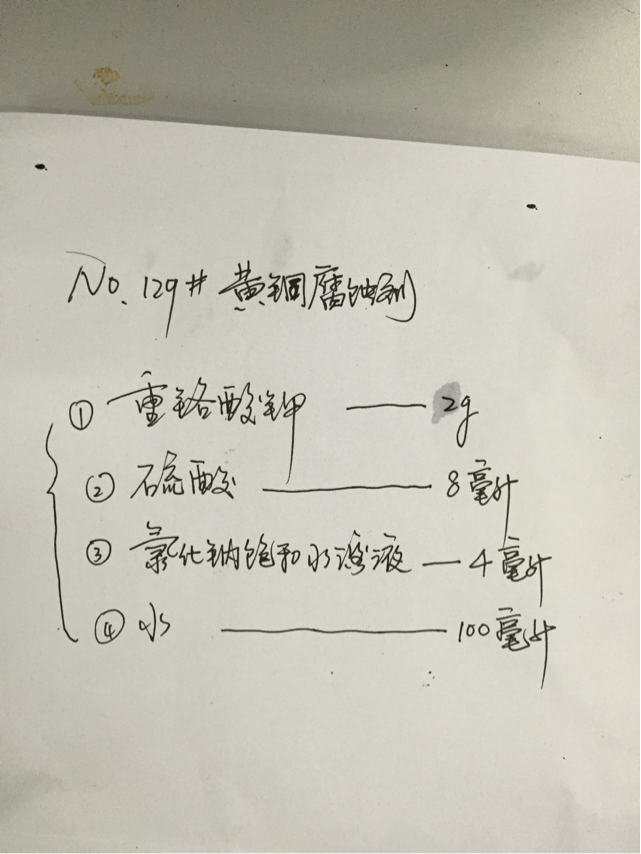 No. 129# 黄铜腐蚀剂
① 重铬酸钾 —— 2g
② 硫酸 —— 8毫升
③ 氯化钠饱和水溶液 — 4毫升
④ 水 —— 100毫升